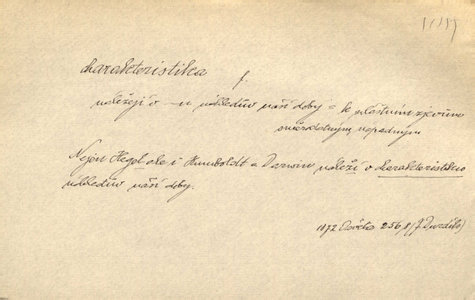 charakteristika f.
náležejí v –u náhledův naší doby = k vlastním zjevům
směrodatným, nápadným
Nejen Hegel ale i Humboldt a Darwin náleží v charakteristiku
náhledův naší doby.
1872 Osvěta 256,8 (J. Durdík)